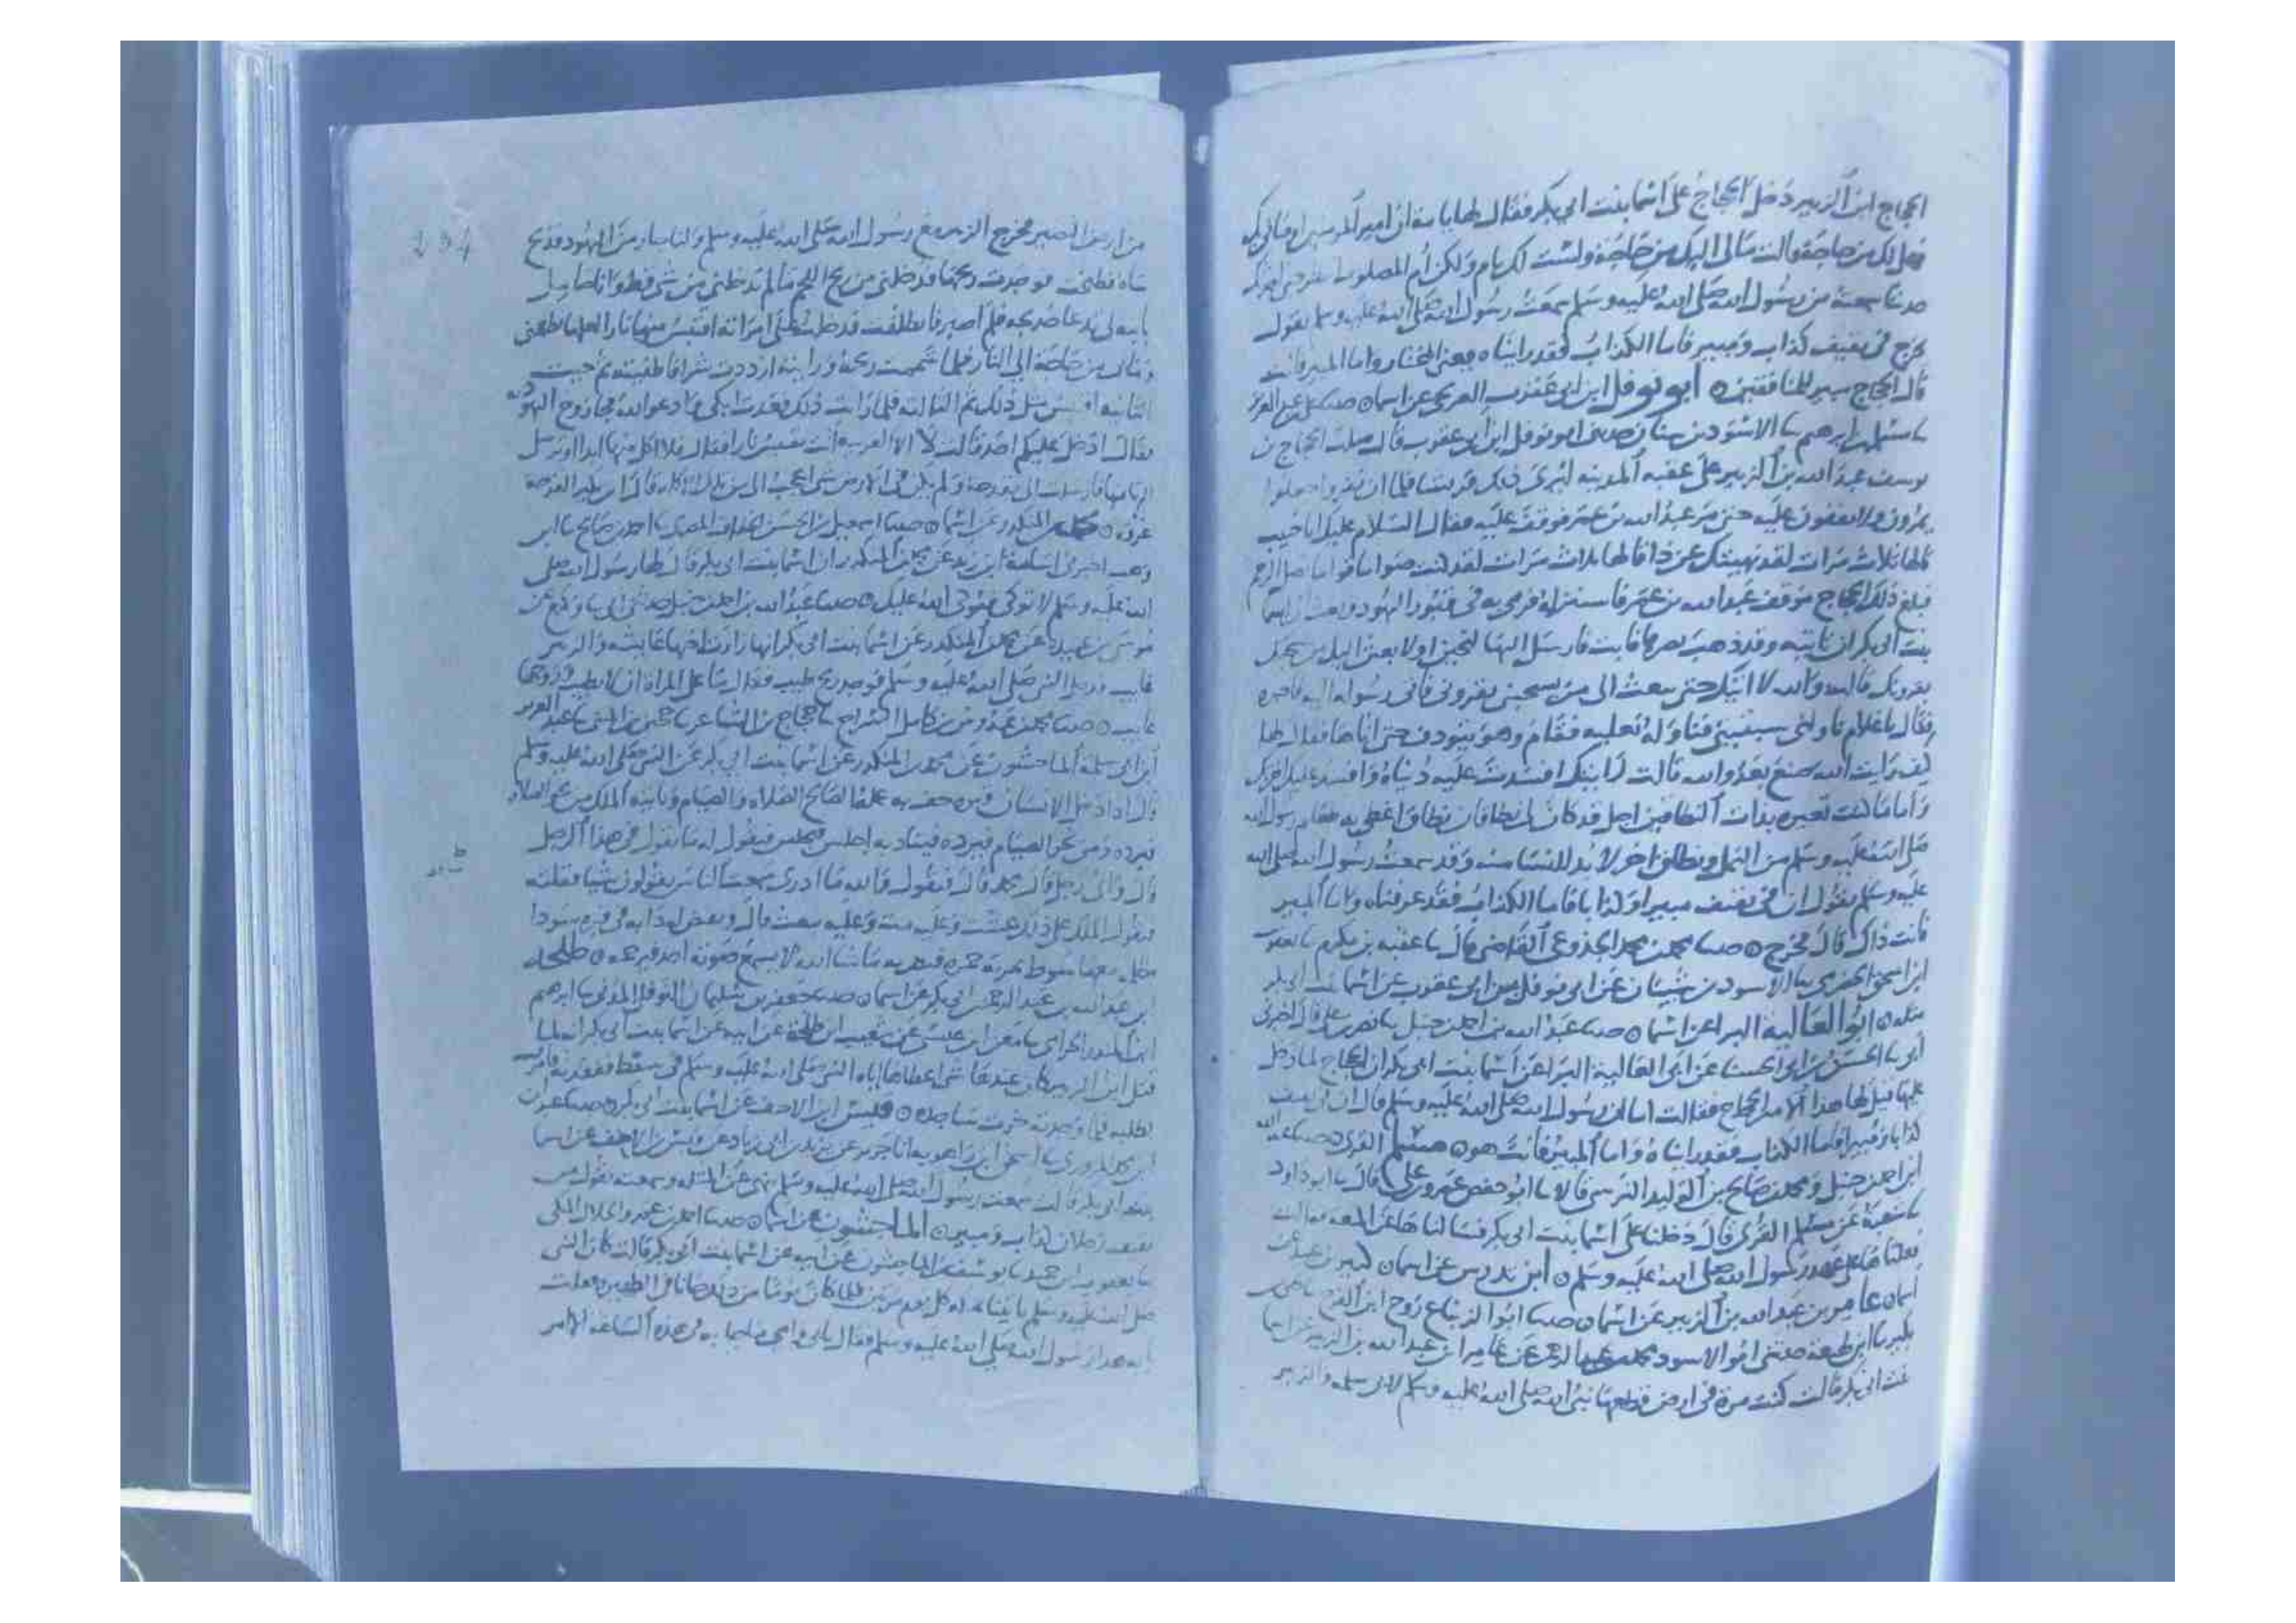 الحجاج ابن الزبير دخل الحجاج على اسما بنت ابي بكر فقال لها يا امه ان امير المومنين اوصاني بك
فهل لك من حاجة قالت مالي اليك من حاجة ولست لك بام ولكن ام المصلوب
حدثنا سمعته من رسول الله صلى الله عليه وسلم سمعت رسول الله صلى الله عليه وسلم يقول
يخرج في ثقيف كذاب ومبير فاما الكذاب فقد رايناه يعني المختار واما المبير فانت
قال الحجاج مبير للمنافقين ٥ ابو نوفل ابن ابي عقرب العريجي عن اسما ٥ حدثنا علي بن عبد العزيز
الاسود بن شيبان حدثني ابو نوفل ابن ابي عقرب قال صلب الحجاج بن
يوسف عبد الله بن الزبير على عقبة المدينه ليري ذلك قريشا فلما ان نفروا جعلوا
يمرون ولا يقفون عليه حتى مر عبد الله بن عمر فوقف عليه فقال السلام عليك ابا خبيب
قالها ثلاث مرات لقد نهيتك عن ذا قالها ثلاث مرات لقد كنت صواما قواما تصل الرحم
فبلغ ذلك الحجاج موقف عبد الله بن عمر فاستنزله فرمي به في قبور اليهود وبعث الى اسما
بنت ابي بكر ان تاتيه وقد ذهب بصرها فابت فارسل اليها لتجين او لابعثن اليك من يسحبك
بقرونك قالت والله لا اتيك حتى تبعث الي من يسحبني بقروني فاتى رسوله اليه فاخبره
فقال يا غلام ناولني سبتيتي فناوله نعليه فقام وهو يتوذف حتى اتاها فقال لها
كيف رايت الله صنع بعدو الله قالت رايتك افسدت عليه دنياه وافسد عليك اخرتك
واما ما كنت تعيره بذات النطاقين اجل قد كان لي نطاقان نطاق اغطي به طعام رسول الله
صلى الله عليه وسلم من النمل ونطاق اخر لا بد للنسا منه وقد سمعت رسول الله صلى الله
عليه وسلم يقول ان في ثقيف مبيرا وكذابا فاما الكذاب فقد عرفناه واما المبير
فانت ذاك قال فخرج ٥ حدثنا محمد بن محمد الجذوعي القاضي قال ثنا عقبة بن مكرم ثنا يعقوب
ابن اسحق الحضرمي ثنا الاسود بن شيبان عن ابي نوفل بن ابي عقرب عن اسما بنت ابي بكر
مثله ٥ ابو العالية البرا عن اسما ٥ حدثنا عبد الله بن احمد بن حنبل ثنا نصر بن علي قال اخبرني
ابي عن ابي العالية البرا عن اسما بنت ابي بكر ان الحجاج لما دخل
عليها قيل لها هذا الامير الحجاج فقالت اما ان رسول الله صلى الله عليه وسلم قال ان في ثقيف
كذابا ومبيرا فاما الكذاب فقد رايناه واما المبير فانت هو ٥ مسلم القري حدثنا عبد الله
ابن احمد بن حنبل ومحمد بن صالح بن الوليد النرسي قالا ثنا ابو حفص عمرو بن علي قال ثنا ابو داود
ثنا شعبة عن مسلم القري قال دخلنا على اسما بنت ابي بكر فسالناها عن المتعة فقالت
فعلناها على عهد رسول الله صلى الله عليه وسلم ٥ ابن تدرس عن اسما ٥
عامر بن عبد الله بن الزبير عن اسما ٥ حدثنا ابو الزنباع روح ابن الفرج ثنا يحيى بن
بكير ثنا ابن لهيعة حدثني ابو الاسود محمد بن عبد الرحمن عن عامر ابن عبد الله بن الزبير عن اسما
بنت ابي بكر قالت كنت مرة في ارض قطعها نبي الله صلى الله عليه وسلم لابي سلمة والزبير
من ارض النضير فخرج الزبير مع رسول الله صلى الله عليه وسلم ولنا جار من اليهود فذبح
شاة فطبخت فوجدت ريحها فدخلني من ريح اللحم ما لم يدخلني من شي قط وانا حامل
بابنة لي تدعا خديجة فلم اصبر فانطلقت فدخلت على امراته اقتبس منها نارا لعلها تطعمني
وما لي من حاجة الى النار فلما شممت ريحه ورايته ازددت شرا فاطفيته ثم جيت
الثانية اقتبس مثل ذلك ثم الثالثة فلما رات ذلك قعدت ابكي وادعو الله فجا زوج اليهودية
فقال ادخل عليكم احد قالت لا الا العربية اتت تقتبس نارا فقال فلا اكل منها ابدا او ترسل
اليها منها فارسلت الي بقدحة ولم يكن في الارض شي اعجب الي من تلك الاكلة قال ابن بكير القدحة
غرفة ٥ محمد بن المنكدر عن اسما ٥ حدثنا اسمعيل بن الحسن الخفاف المصري ثنا احمد بن صالح ثنا ابن
وهب اخبرني اسامة ابن زيد عن محمد بن المنكدر ان اسما بنت ابي بكر قال لها رسول الله صلى
الله عليه وسلم لا توكي فيوكى الله عليك ٥ حدثنا عبد الله بن احمد بن حنبل حدثني ابي ثنا وكيع عن
موسى بن عبيدة عن محمد بن المنكدر عن اسما بنت ابي بكر انها زارت اختها عايشه والزبير
غايب فدخل النبي صلى الله عليه وسلم فوجد ريح طيب فقال ما على المراة ان لا تطيب وزوجها
غايب ٥ حدثنا محمد بن عبدوس بن كامل السراج ثنا حجاج بن الشاعر ثنا حجين بن المثنى ثنا عبد العزيز
ابن ابي سلمة الماجشون عن محمد بن المنكدر عن اسما بنت ابي بكر عن النبي صلى الله عليه وسلم
قال اذا دخل الانسان قبره حف به عمله الصالح الصلاه والصيام وياتيه الملك من نحو الصلاه
فيرده ومن نحو الصيام فيرده فيناديه اجلس فيجلس فيقول له ما تقول في هذا الرجل
قال واي رجل قال محمد قال فيقول والله ما ادري سمعت الناس يقولون شيا فقلته
فيقول الملك على ذلك عشت وعليه مت وعليه تبعث قال ويقيض له دابة في قبره سودا
مظلمة معها سوط تمرته جمرة فتضربه ما شا الله لا يسمع صوته احد فيرحمه ٥ طلحة
ابن عبد الله بن عبد الرحمن ابن ابي بكر عن اسما ٥ حدثنا جعفر بن سليمان النوفلي المدني ثنا ابرهيم
ابن المنذر الحزامي ثنا معن ابن عيسى عن شعيب ابن طلحة عن ابيه عن اسما بنت ابي بكر انه لما
قتل ابن الزبير كان عندها شي اعطاها اياه النبي صلى الله عليه وسلم في سفط ففقدته فامرت
بطلبه فلما وجدته خرت ساجدة ٥ قيس ابن الاحنف عن اسما بنت ابي بكر ٥ حدثنا عبدان
ابن محمد المروزي ثنا اسحق ابن راهويه انا جرير عن يزيد بن ابي زياد عن قيس بن الاحنف عن اسما
بنت ابي بكر قالت سمعت رسول الله صلى الله عليه وسلم نهى عن المثلة وسمعته يقول في
ثقيف رجلان كذاب ومبير ٥ الماجشون عن اسما ٥ حدثنا احمد بن عمرو الخلال المكي
ثنا يعقوب بن حميد ثنا يوسف بن الماجشون عن ابيه عن اسما بنت ابي بكر قالت كان النبي
صلى الله عليه وسلم ياتينا بمكة كل يوم مرتين فلما كان يوما من ذلك جانا في الظهيرة فقلت
يابه هذا رسول الله صلى الله عليه وسلم فقال بابي وامي ما جا به في هذه الساعة الا امر